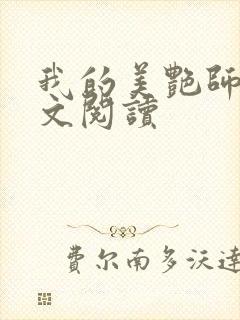 我的美艷師
文閱讀
費尔南多沃達